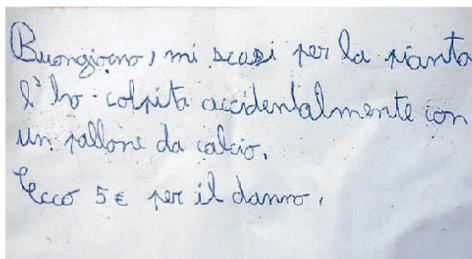 Buongiorno, mi scusi per la pianta
l'ho colpita accidentalmente con
un pallone da calcio.
Ecco 5 € per il danno.